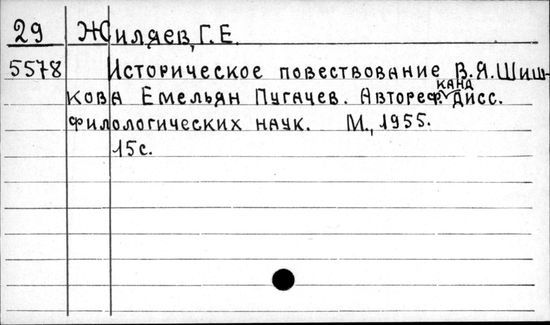 29 Жиляев, Г.Е.
5578 Историческое повествование В.Я.Шиш-
кова Емельян Пугачев. Автореф. канд дисс.
филологических наук. М., 1955.
15с.